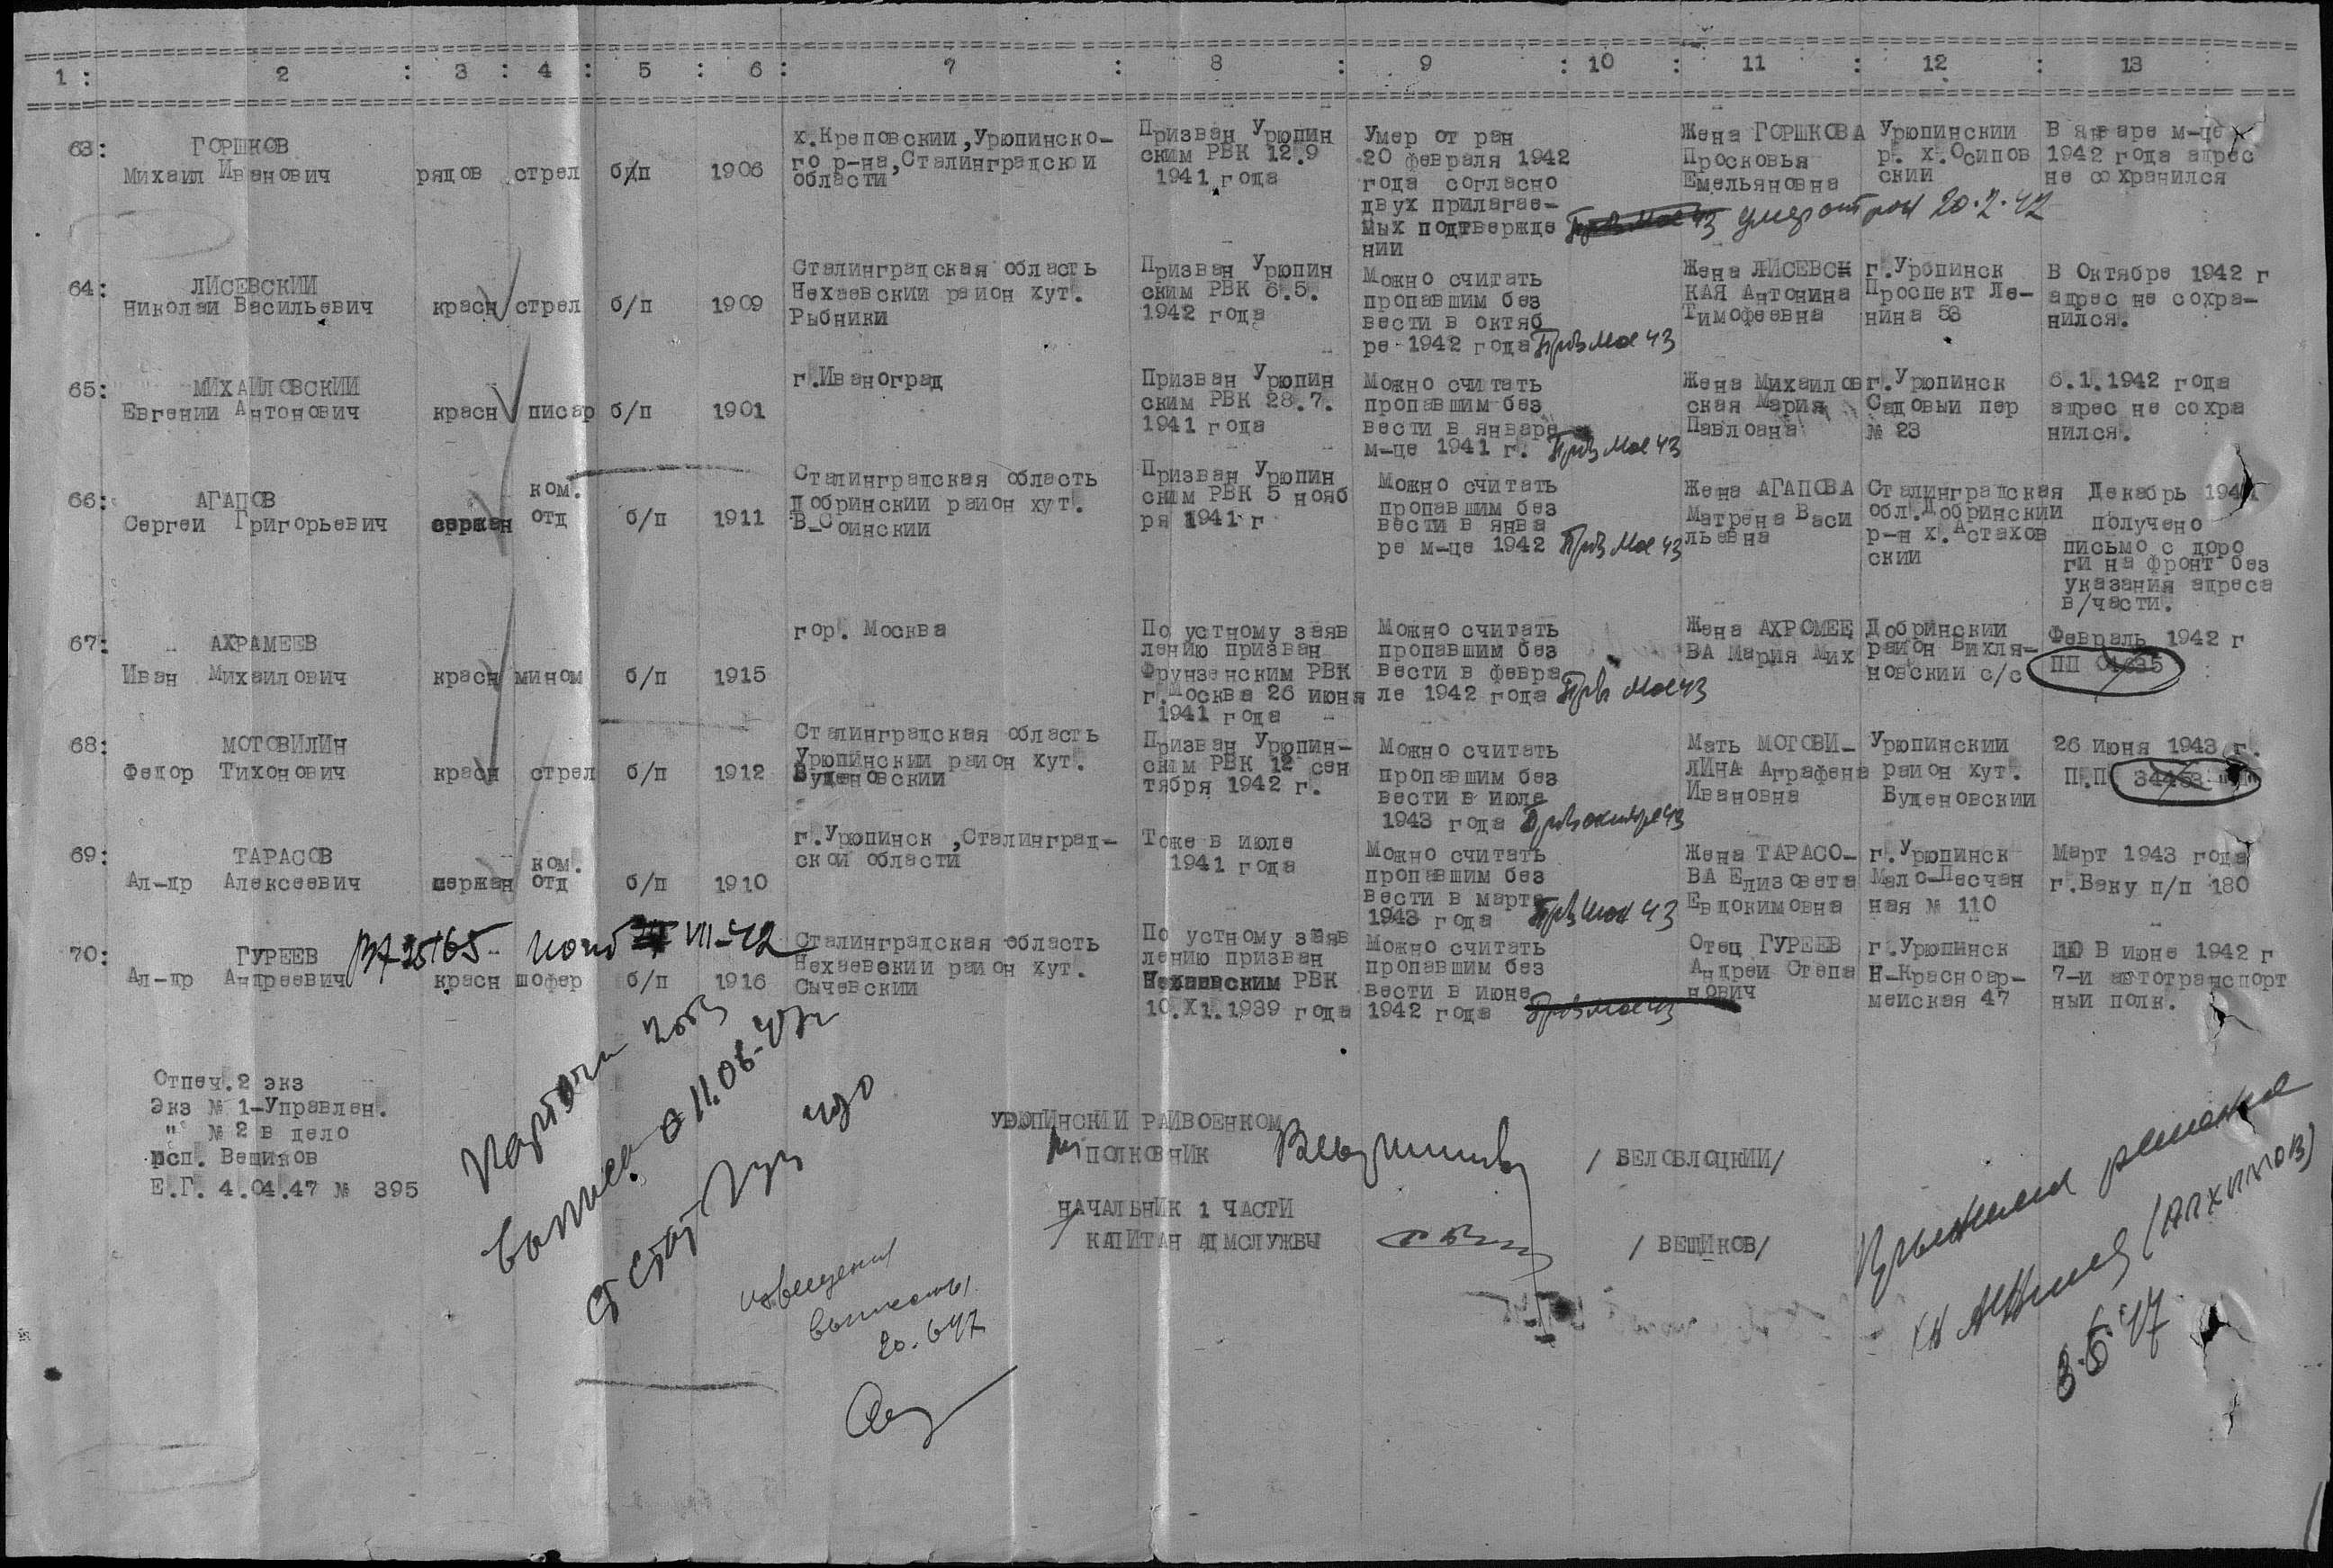 1 : 2 : 3 : 4 : 5 : 6 : 7 : 8 : 9 : 10 : 11 : 12 : 13
63: ГОРШКОВ
Михаил Иванович рядов стрел б/п 1906
х.Креповский,Урюпинско-
го р-на,Сталинградской
области
Призван Урюпин
ским РВК 12.9
1941 года
Умер от ран
20 февраля 1942
года согласно
двух прилагае-
мых подтвержде
нии
умер от ран 20.2.42
Жена ГОРШКОВА
Просковья
Емельяновна
Урюпинский
р. х.Осипов
ский
В январе м-це
1942 года адрес
не сохранился
64: ЛИСЕВСКИЙ
Николай Васильевич красн стрел б/п 1909
Сталинградская область
Нехаевский район хут.
Рыбники
Призван Урюпин
ским РВК 6.5.
1942 года
Можно считать
пропавшим без
вести в октяб
ре 1942 года
Жена ЛИСЕВСК
КАЯ Антонина
Тимофеевна
г.Урюпинск
Проспект Ле-
нина 53
В Октябре 1942 г
адрес не сохра-
нился.
65: МИХАЙЛОВСКИЙ
Евгений Антонович красн писар б/п 1901
г.Иваноград
Призван Урюпин
ским РВК 28.7.
1941 года
Можно считать
пропавшим без
вести в январе
м-це 1941 г.
Жена Михайлов
ская Мария
Павлоана
г.Урюпинск
Садовый пер
№ 23
6.1.1942 года
адрес не сохра
нился.
66: АГАПОВ
Сергей Григорьевич сержан ком.
отд б/п 1911
Сталинградская область
Добринский район хут.
В-Соинский
Призван Урюпин
ским РВК 5 нояб
ря 1941 г
Можно считать
пропавшим без
вести в янва
ре м-це 1942
Жена АГАПОВА
Матрена Васи
льевна
Сталинградская
обл.Добринский
р-н х.Астахов
ский
Декабрь 1941
получено
письмо с доро
ги на фронт без
указания адреса
в/части.
67: АХРАМЕЕВ
Иван Михайлович красн мином б/п 1915
гор. Москва
По устному заяв
лению призван
Фрунзенским РВК
г.Москва 26 июня
1941 года
Можно считать
пропавшим без
вести в февра
ле 1942 года
Жена АХРОМЕЕ
ВА Мария Мих
Добринский
район Вихля-
новский с/с
Февраль 1942 г
ПП
68: МОТОВИЛИН
Федор Тихонович красн стрел б/п 1912
Сталинградская область
Урюпинский район хут.
Буденовский
Призван Урюпин-
ским РВК 12 сен
тября 1942 г.
Можно считать
пропавшим без
вести в июле
1943 года
Мать МОТОВИ-
ЛИНА Аграфена
Ивановна
Урюпинский
район хут.
Буденовский
26 Июня 1943 г.
П.П
69: ТАРАСОВ
Ал-др Алексеевич сержан ком.
отд б/п 1910
г.Урюпинск ,Сталинград-
ской области
Тоже в июле
1941 года
Можно считать
пропавшим без
вести в марте
1943 года
Жена ТАРАСО-
ВА Елизовета
Евдокимовна
г.Урюпинск
Мало-Песчан
ная № 110
Март 1943 года
г.Баку п/п 180
70: ГУРЕЕВ
Ал-др Андреевич красн шофер б/п 1916
VII-42
Сталинградская область
Нехаевский район хут.
Сычевский
По устному заяв
лению призван
Нехаевским РВК
10.X1.1939 года
Можно считать
пропавшим без
вести в июне
1942 года
Отец ГУРЕЕВ
Андрей Степа
нович
г.Урюпинск
Н-Красноар-
мейская 47
В июне 1942 г
7-й автотранспорт
ный полк.
Отпеч.2 экз
Экз № 1-Управлен.
" № 2 в дело
исп. Вещиков
Е.Г. 4.04.47 № 395
УРЮПИНСКИЙ РАЙВОЕНКОМ
ПОЛКОВНИК / БЕЛОВЛОЦКИЙ/
НАЧАЛЬНИК 1 ЧАСТИ
КАПИТАН АДМСЛУЖБЫ / ВЕЩИКОВ/
извещения
выписаны
20.6 47